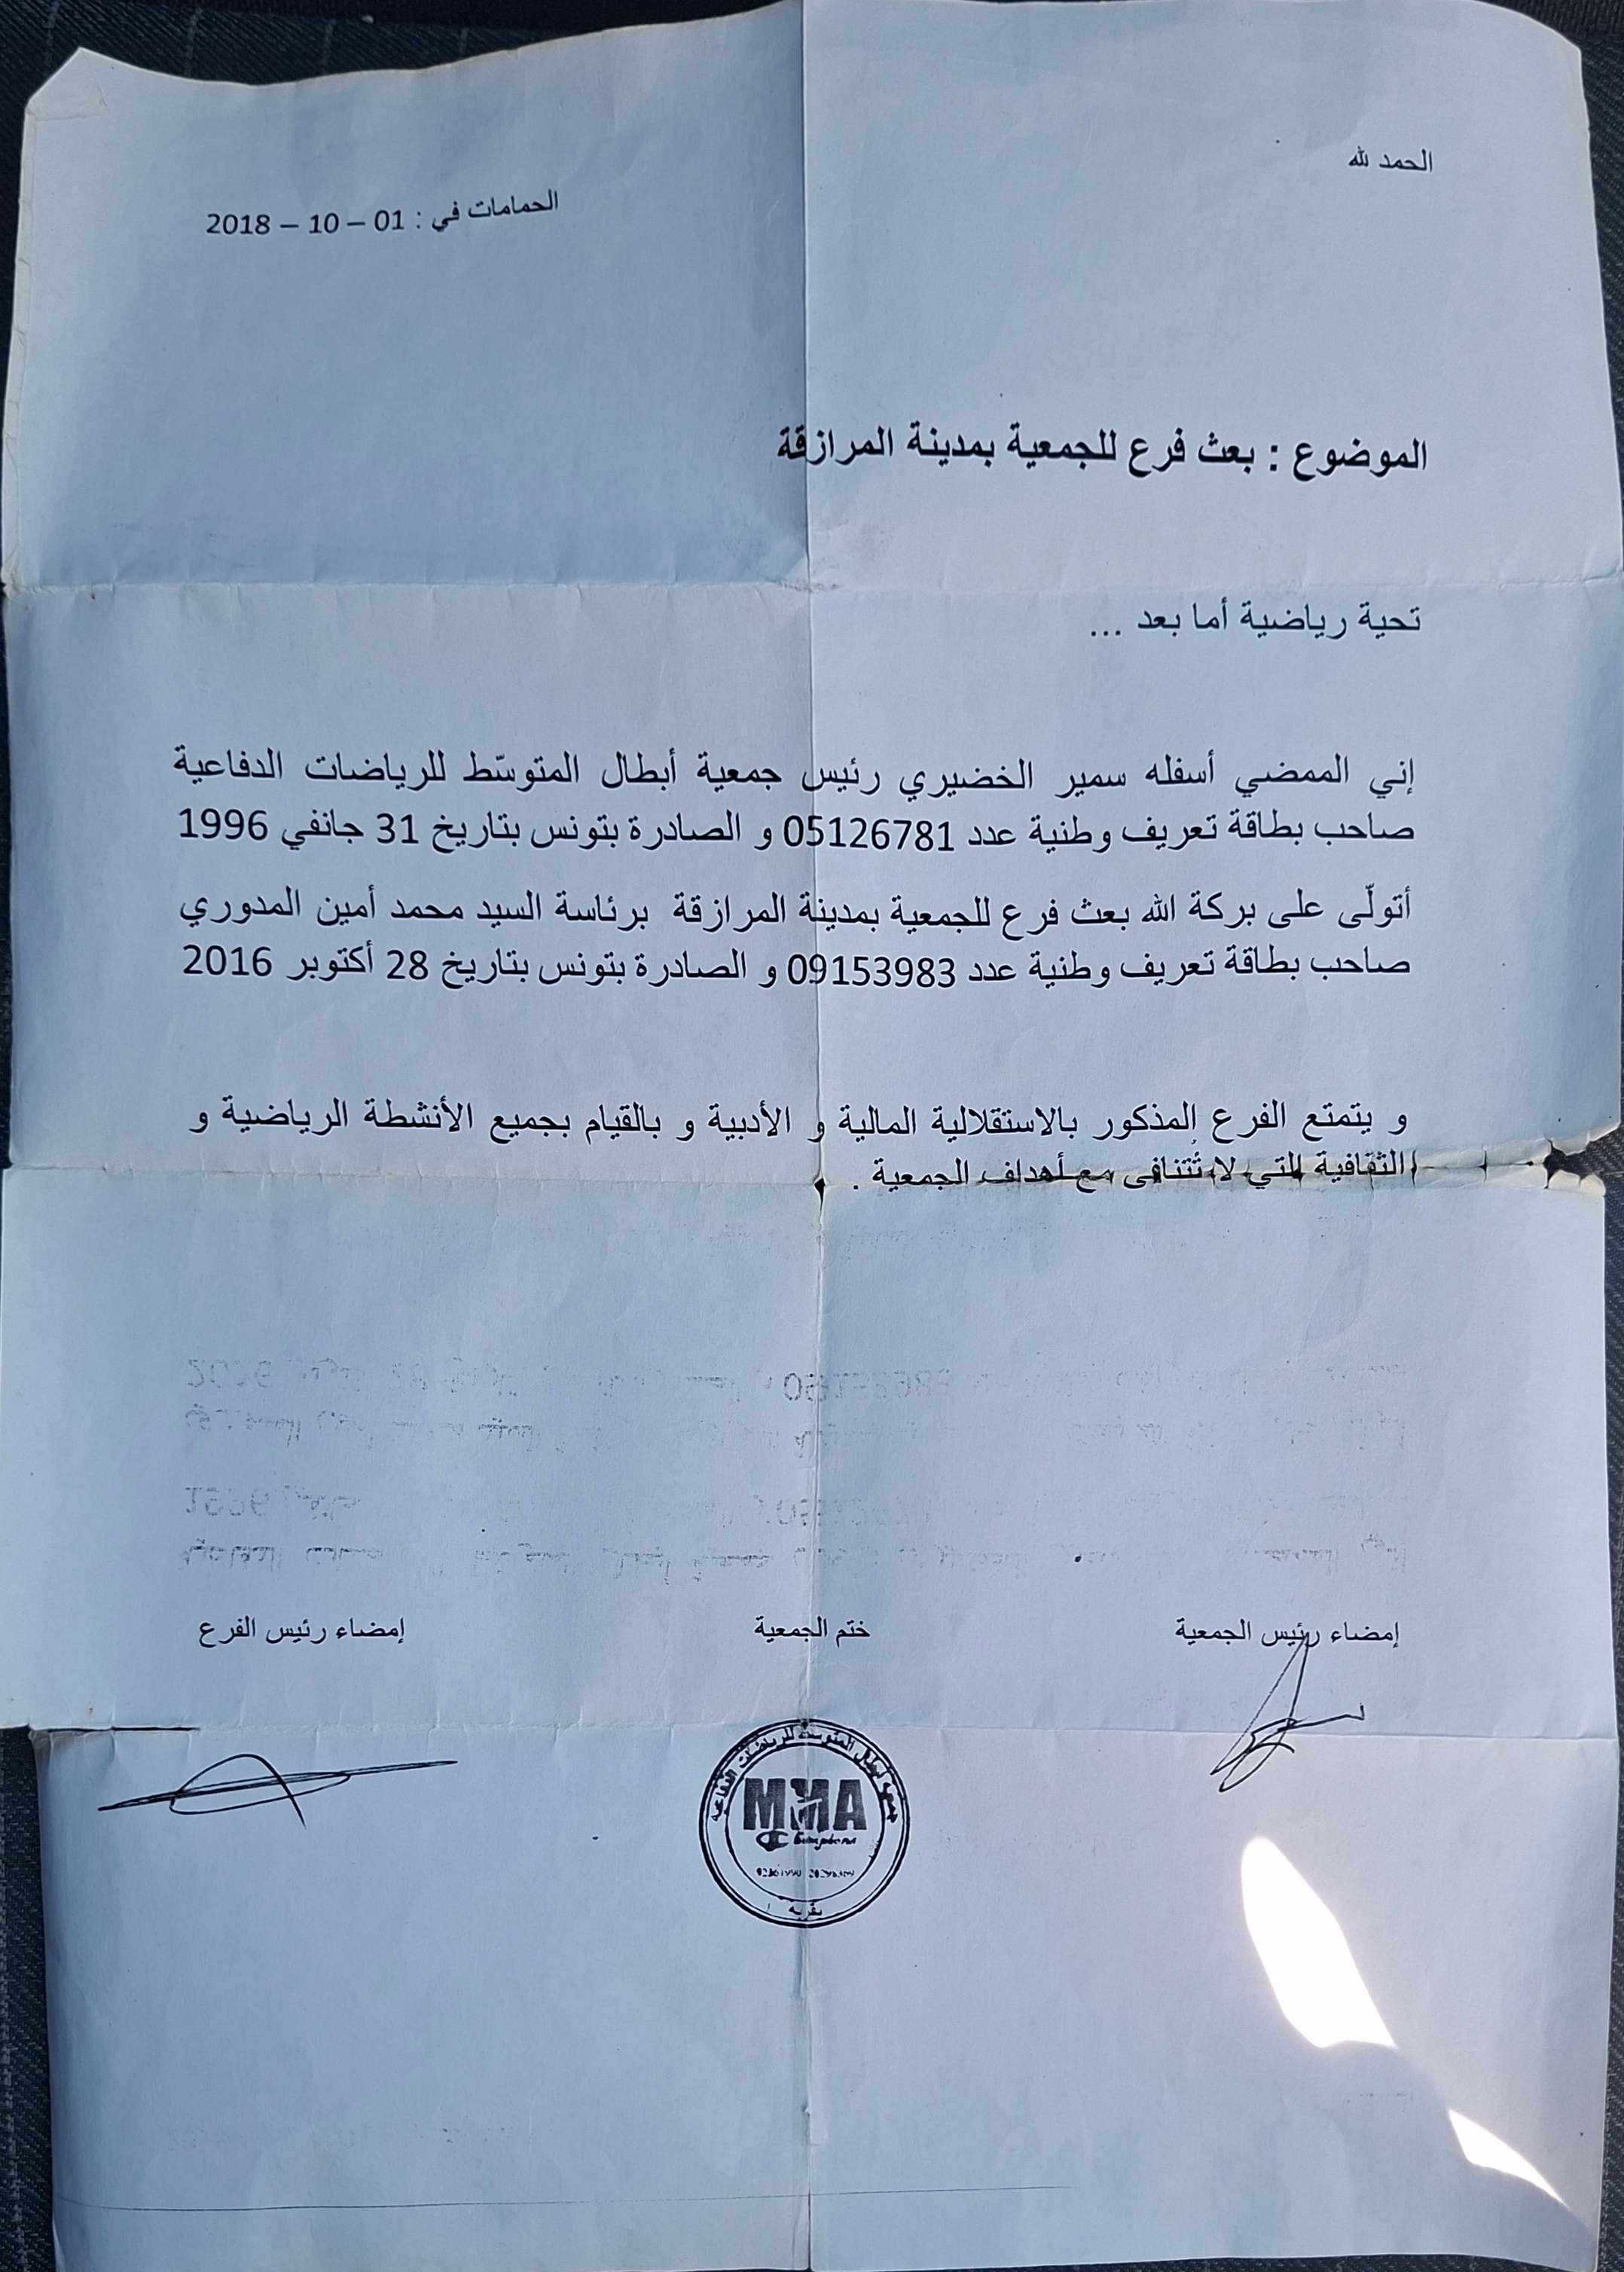 الحمد لله
الحمامات في : 01 – 10 – 2018
الموضوع : بعث فرع للجمعية بمدينة المرازقة
تحية رياضية أما بعد ...
إني الممضي أسفله سمير الخضيري رئيس جمعية أبطال المتوسّط للرياضات الدفاعية
صاحب بطاقة تعريف وطنية عدد 05126781 و الصادرة بتونس بتاريخ 31 جانفي 1996
أتولّى على بركة الله بعث فرع للجمعية بمدينة المرازقة برئاسة السيد محمد أمين المدوري
صاحب بطاقة تعريف وطنية عدد 09153983 و الصادرة بتونس بتاريخ 28 أكتوبر 2016
و يتمتع الفرع المذكور بالاستقلالية المالية و الأدبية و بالقيام بجميع الأنشطة الرياضية و
الثقافية التي لا تتنافى مع أهداف الجمعية .
إمضاء رئيس الجمعية
ختم الجمعية
إمضاء رئيس الفرع
جمعية أبطال المتوسط للرياضات الدفاعية
MMA